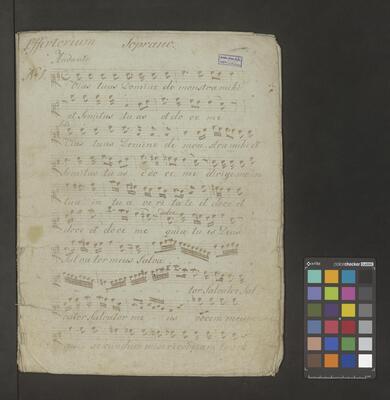 Offertorium Soprano.
Andante
No 1.
Vias tuas Domine demonstra mihi
et Semitas tuas edoce me
Vias tuas Domine demonstra mihi et
Semitas tuas edoce me dirige me in
tua in tua veritate et doce et
doce et doce me quia tu es Deus
Salvator meus Salva
tor Salvator Sal
vator Salvator me us vocem meam
secundum misericordiam tuam
colorchecker